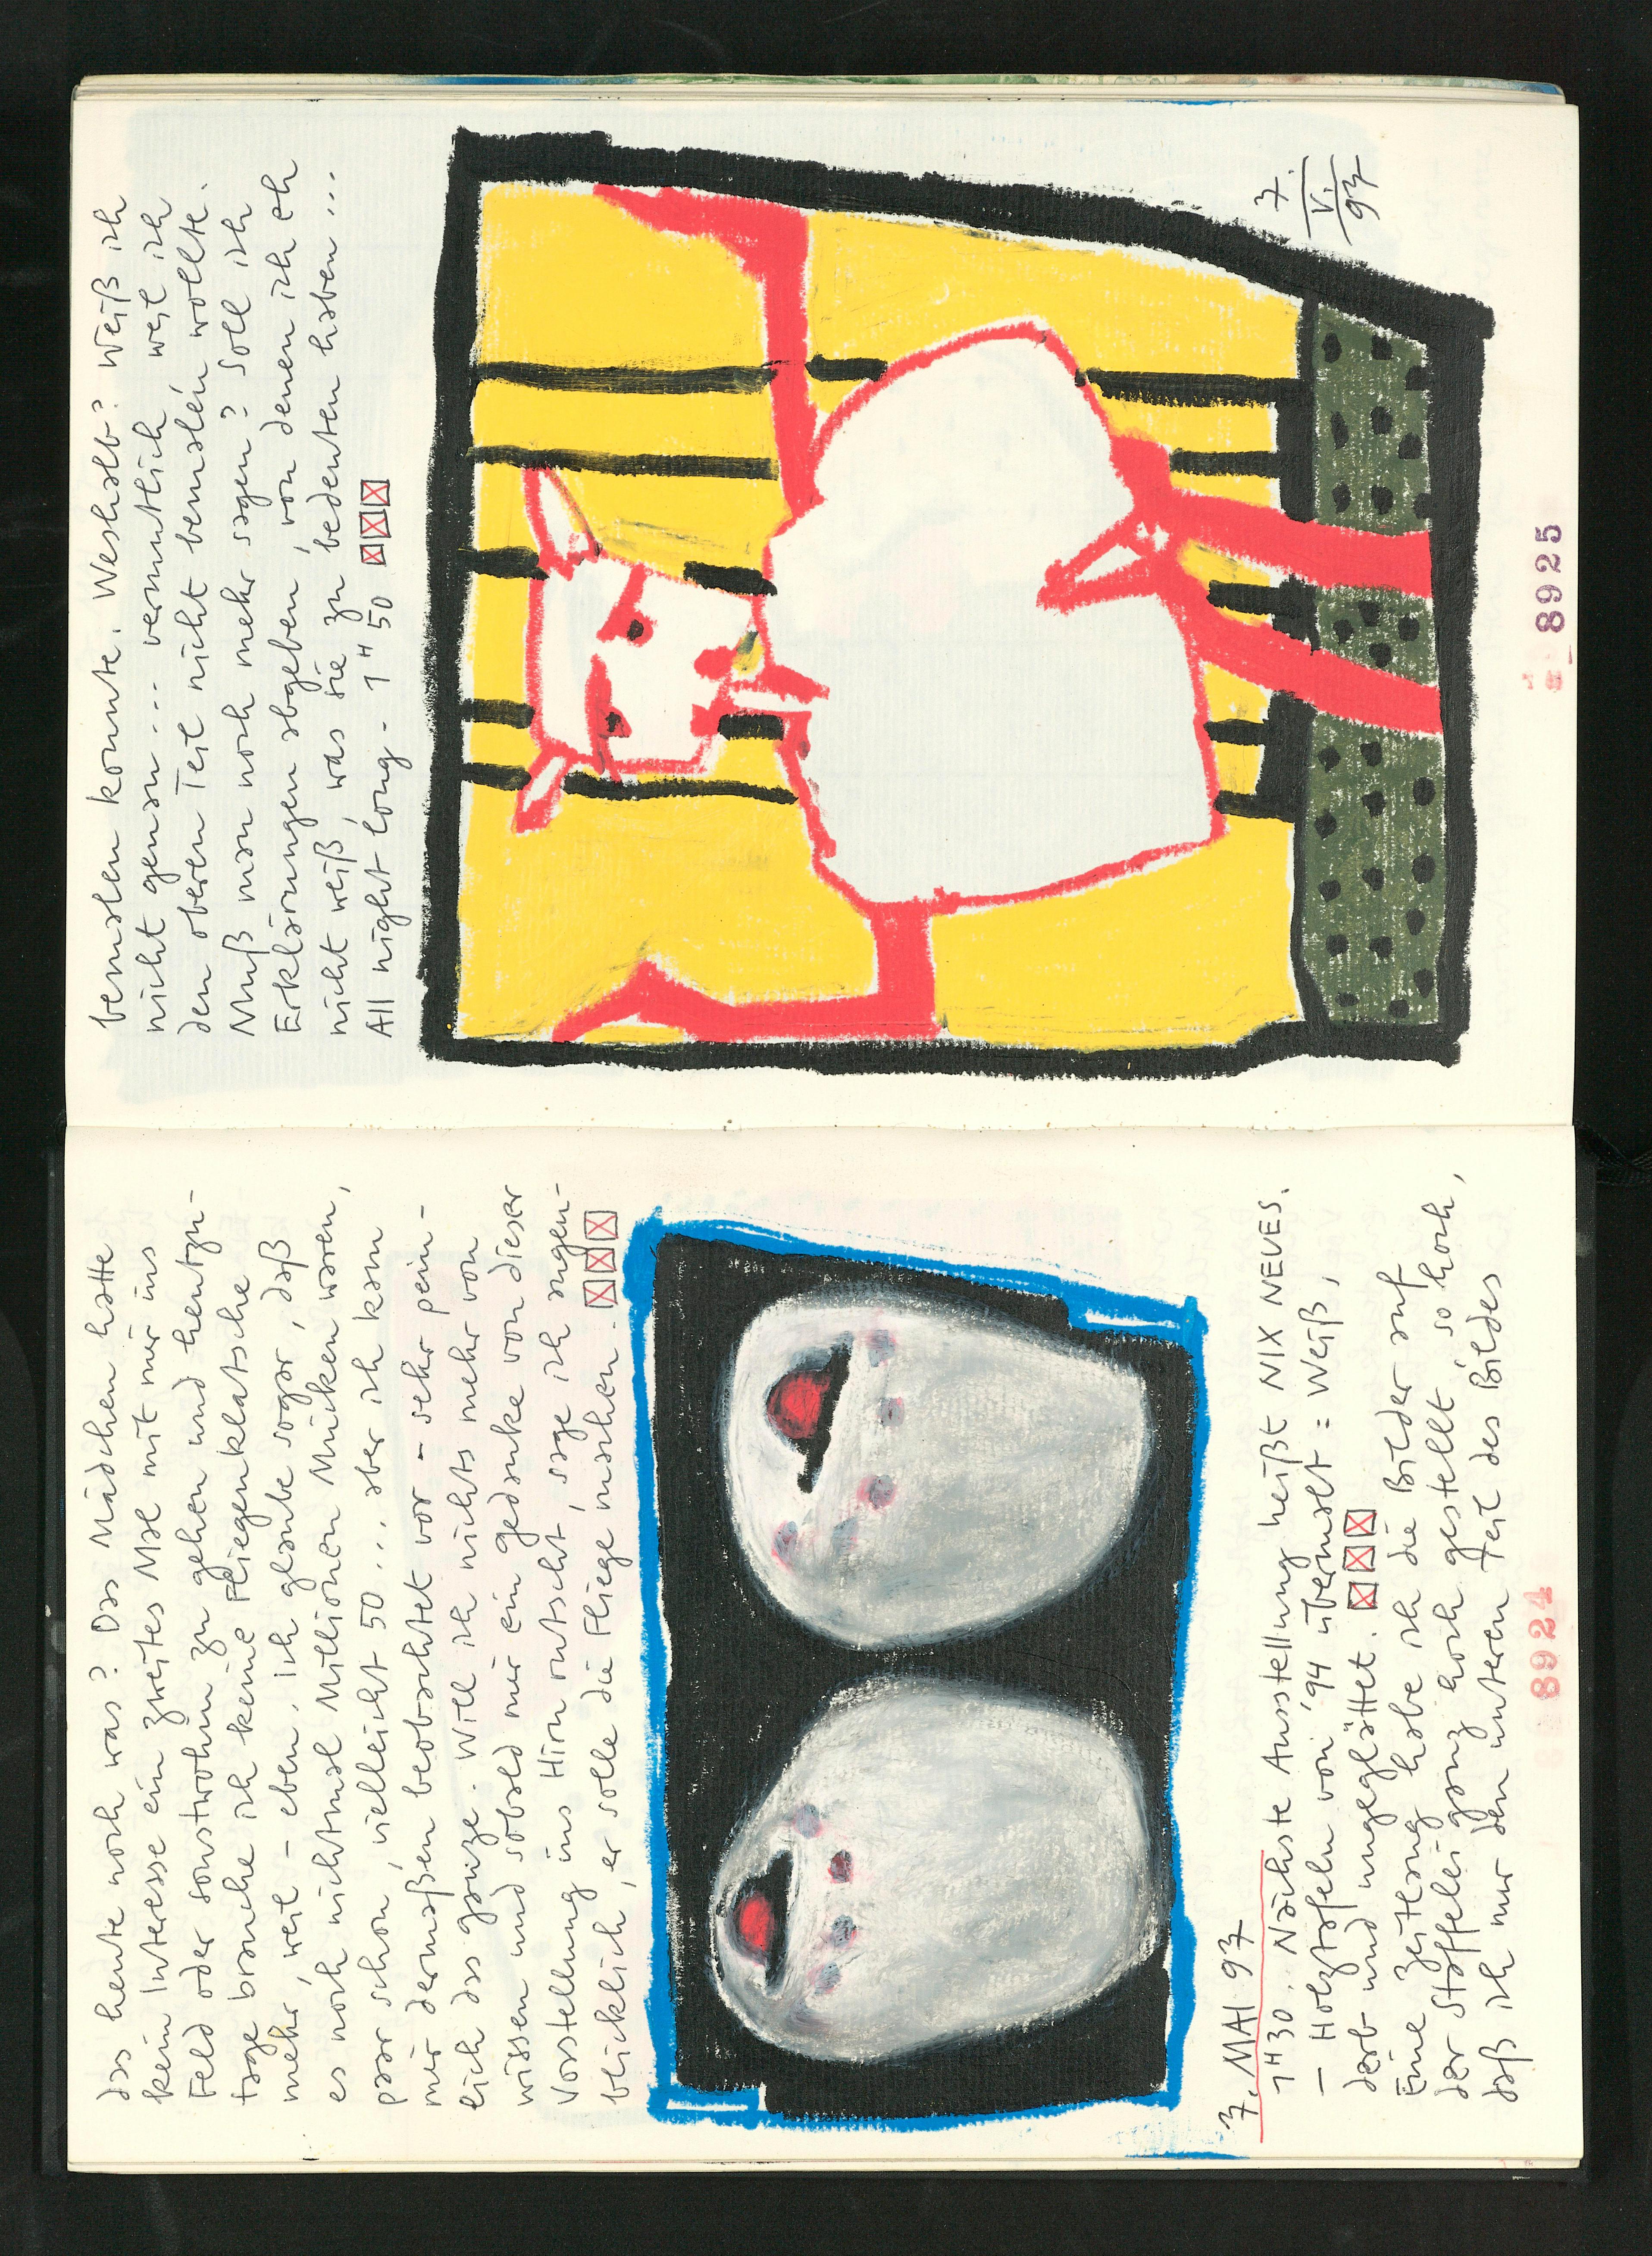 das heute noch was? Das Mädchen hatte
kein Interesse ein zweites Mal mit mir ins
Feld oder sonstwohin zu gehen und heutzu-
tage brauche ich keine Fliegenklatsche
mehr, weil - eben, ich glaube sogar, daß
es noch nichtmal Millionen Mücken waren,
paar schon, vielleicht 50... aber ich kam
mir dermaßen beobachtet vor - sehr pein-
lich das ganze. Will ich nichts mehr von
wissen und sobald mir ein gedanke von dieser
Vorstellung ins Hirn rutscht, sage ich augen-
blicklich, er solle die Fliege machen.
7. MAI 97
1H30.. Nächste Ausstellung heißt NIX NEUES.
- Holztafeln von '94 übermalt = Weiß,
derb und ungeglättet.
Eine zeitlang habe ich die Bilder auf
der Staffelei ganz hoch gestellt, so hoch,
daß ich nur den unteren Teil des Bildes
8924
bemalen konnte. Weshalb? Weiß ich
nicht genau... vermutlich, weil ich
den oberen Teil nicht bemalen wollte.
Muß man noch mehr sagen? Soll ich
Erklärungen abgeben, von denen ich eh
nicht weiß, was sie zu bedeuten haben...
All night long - 1H50
7.
V.
97
8925